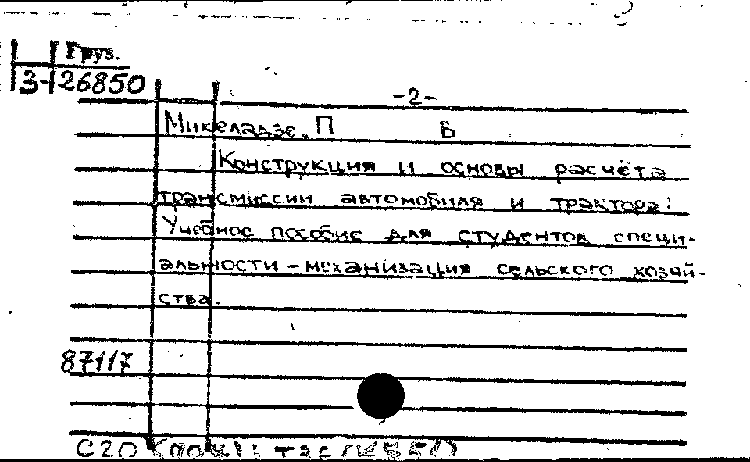 Груз.
3-26850
-2-
Микеладзе, П В
Конструкция и основы расчёта
трансмиссии автомобиля и трактора:
Учебное пособие для студентов специ-
альности - механизация сельского хозяй-
ства.
87117